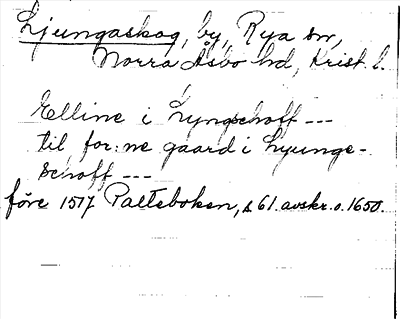 Ljungaskog, by, Rya sn,
Norra Åsbo hd, Krist. l.
Elline i Lyngschoff ---
til for:ne gaard i Lyunge-
schoff ---
före 1517 Palteboken, s 61. avskr. o. 1650.